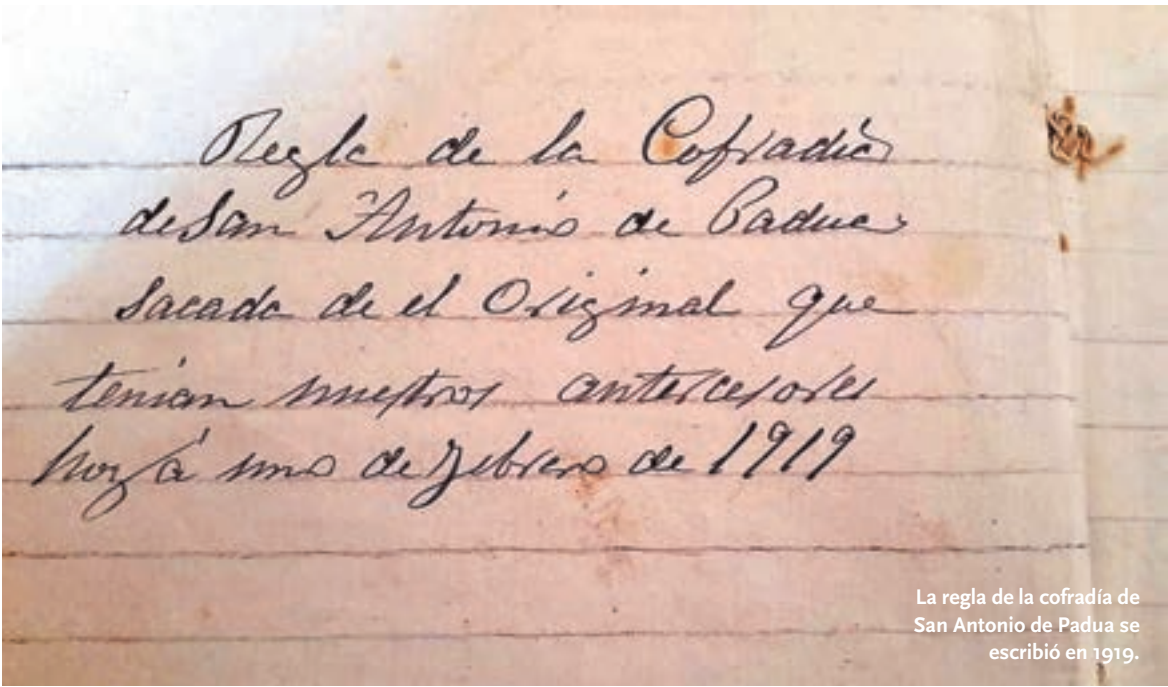 Regla de la Cofradia
de San Antonio de Padua
sacada de el Original que
tenian nuestros antercesores
hoy á uno de Febrero de 1919
La regla de la cofradía de
San Antonio de Padua se
escribió en 1919.